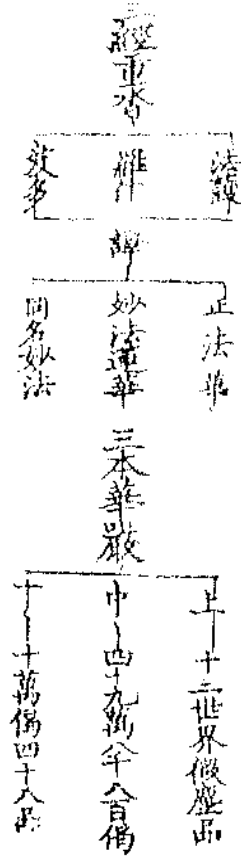 經重沓
法護
羅什
笈多
譯
正法華
妙法蓮華
同名妙法
三本華嚴
上—十三世界微塵品
中—四十九萬八千八百偈
下—十萬偈四十八品